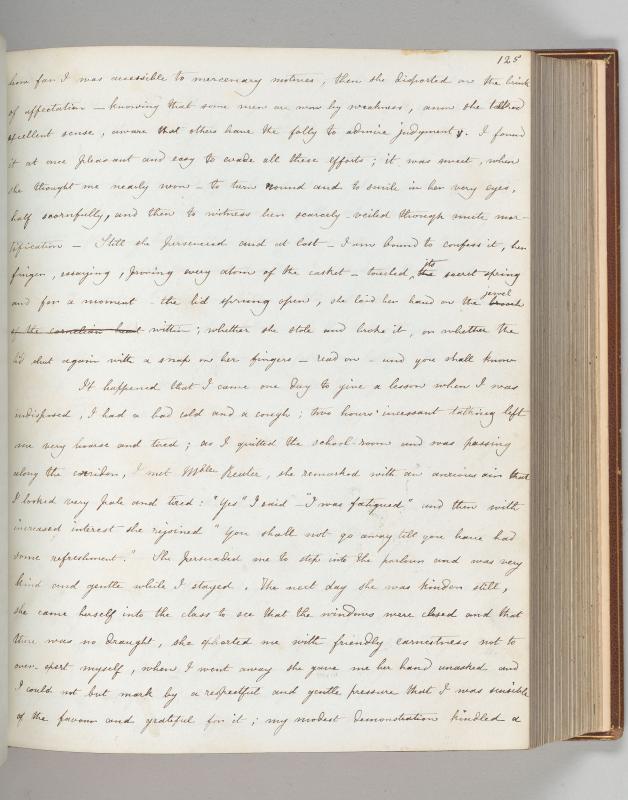 125
how far I was accessible to mercenary motives, then she disported on the brink
of affectation – knowing that some men are won by weakness, anon she talked
excellent sense, aware that others have the folly to admire judgment. I found
it at once pleasant and easy to evade all these efforts; it was sweet, when
she thought me nearly won – to turn round and to smile in her very eyes,
half scornfully, and then to witness her scarcely-veiled though mute mor-
tification – Still she persevered and at last – I am bound to confess it, her
finger, essaying, proving every atom of the casket – touched its the secret spring
and for a moment – the lid sprung open, she laid her hand on the jewel brooch
of the cornelian heart within; whether she stole and broke it, or whether the
lid shut again with a snap on her fingers – read on – and you shall know
It happened that I came one day to give a lesson when I was
indisposed, I had a bad cold and a cough; two hours' incessant talking left
me very hoarse and tired; as I quitted the school-room and was passing
along the corridor, I met Mdlle Reuter, she remarked with an anxious air that
I looked very pale and tired: "Yes" I said – "I was fatigued" and then with
increased interest she rejoined "You shall not go away till you have had
some refreshment." She persuaded me to step into the parlour and was very
kind and gentle while I stayed. The next day she was kinder still,
she came herself into the class to see that the windows were closed and that
there was no draught, she exhorted me with friendly earnestness not to
over-exert myself, when I went away she gave me her hand unasked and
I could not but mark by a respectful and gentle pressure that I was sensible
of the favour and grateful for it; my modest demonstration kindled a